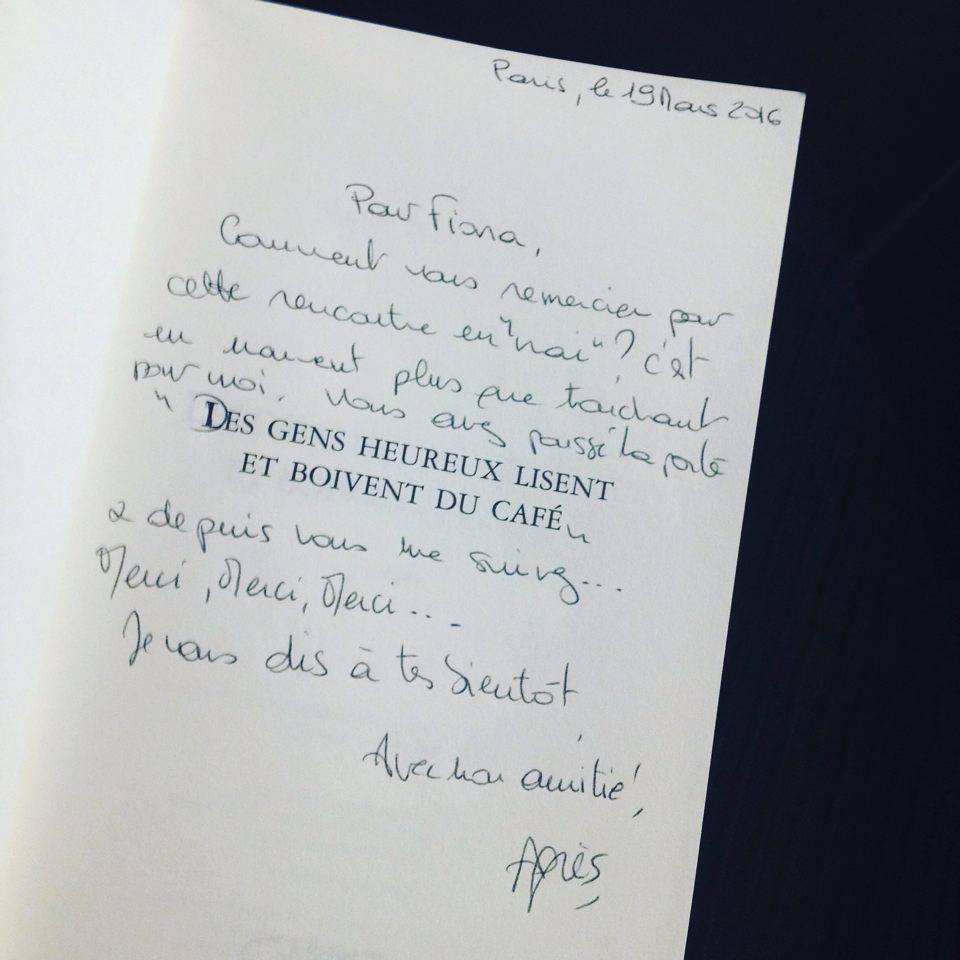 Paris, le 19 Mars 2016
Pour Fiona,
Comment vous remercier pour
cette rencontre en "vrai"? c'est
un moment plus que touchant
pour moi. Vous avez poussé la porte
"DES GENS HEUREUX LISENT
ET BOIVENT DU CAFÉ"
& depuis vous me suivez...
Merci, Merci, Merci...
Je vous dis à très bientôt,
Avec mon amitié,
Agnès